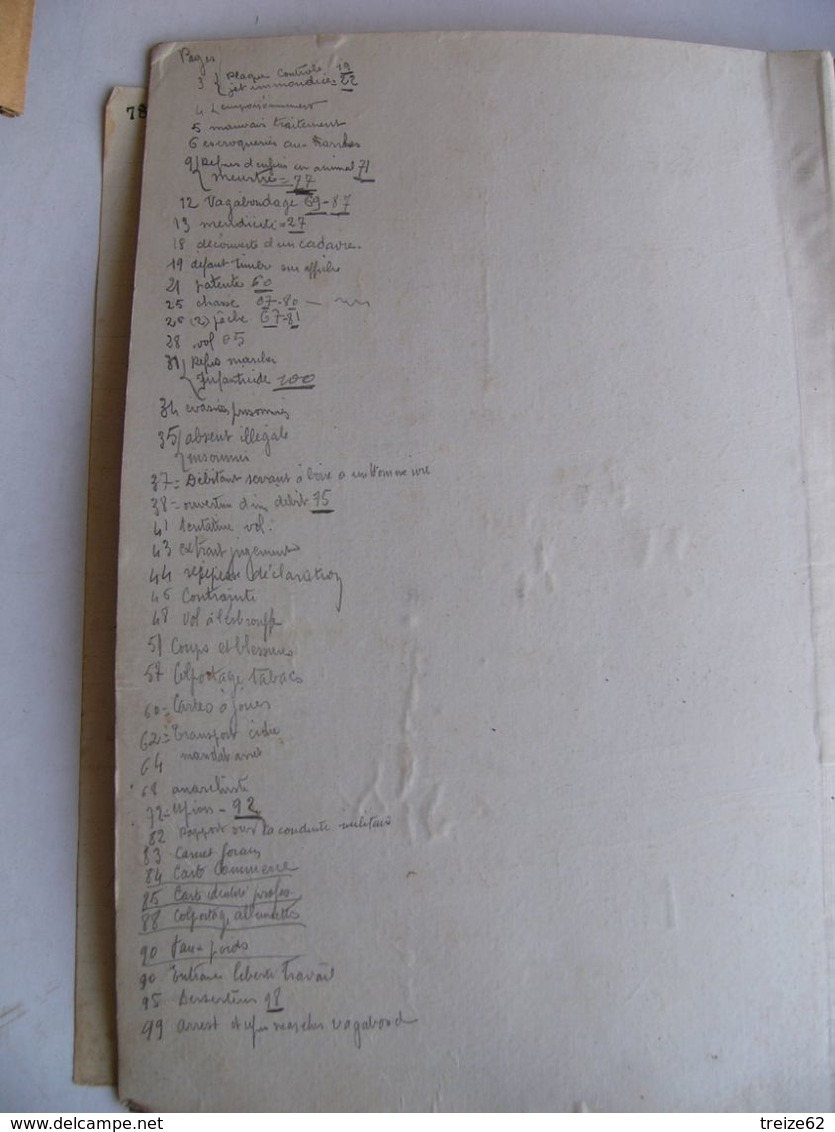 Pages
3 { plaque contrôle 19
jet immondices 22
4 empoisonnement
5 mauvais traitement
6 escroqueries aux
9 { Refus d'enfouir un animal 71
meurtre = 77
12 Vagabondage 69-87
13 mendicité = 27
18 découverte d'un cadavre.
19 défaut timbre sur affiche
21 patente 60
25 chasse 67-80
26 (2) pêche 67-81
28 vol 05
31 { Refus marcher
Infanticide 100
34 évasion prisonniers
35 { absent illégale
insoumis
37 = Débitant servant à boire à un homme ivre
38 = ouverture d'un débit 75
41 tentative vol.
43 extrait jugement
44 déclaration
46 Contrainte
48 Vol à l'esbrouffe
51 Coups et blessures
57 Colportage tabacs
60 = Cartes à jouer
62 = Transport cidre
64 mandat arrêt
68 anarchiste
72 = 92
82 Rapport sur la conduite militaire
83 Carnet forain
84 Carte commerce
85 Carte identité profes
88 Colportage allumettes
90 Faux poids
90 Entrave liberté travail
95 Déserteur 98
99 arrest et refus marcher vagabond
78
treize62